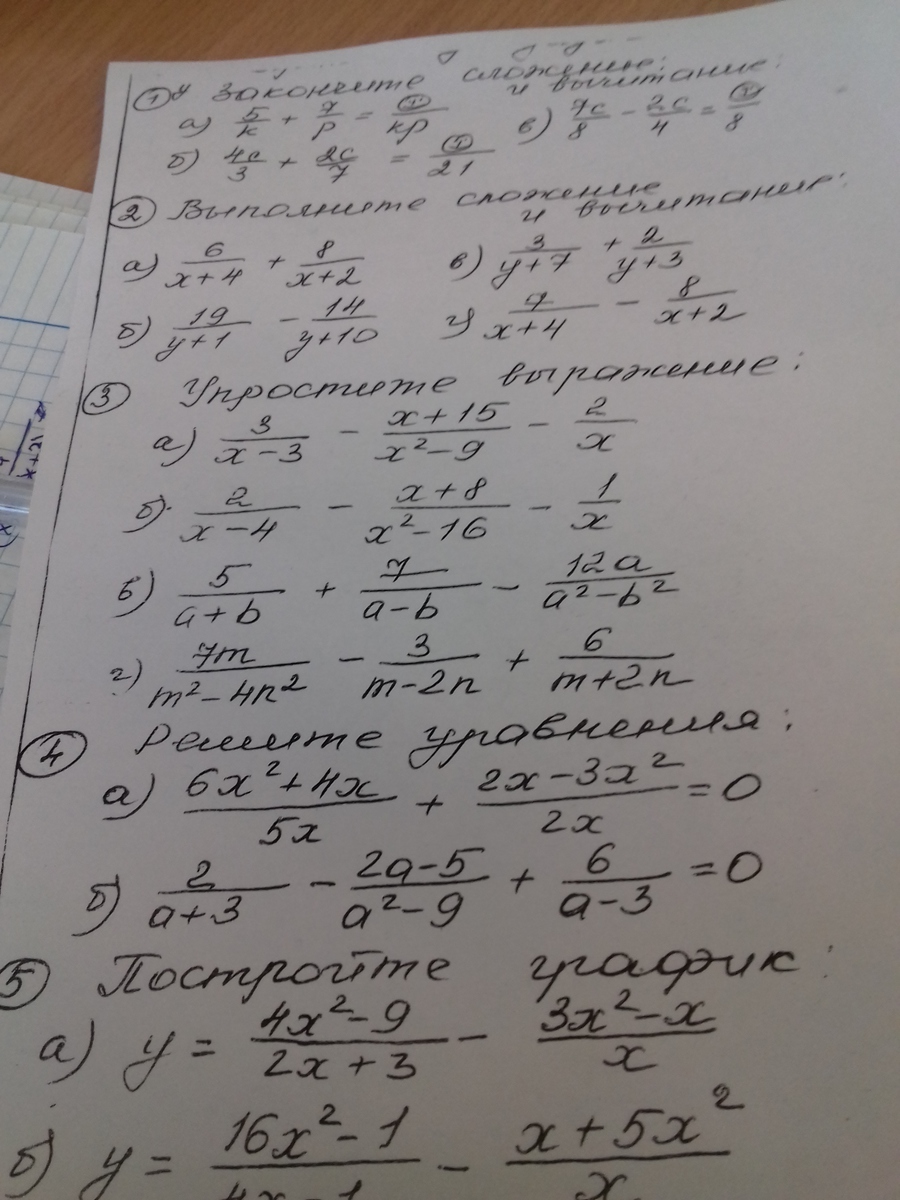 ① Закончите сложение и вычитание:
а) 5/k + 7/p = □/kp в) 7c/8 - 2c/4 = □/8
б) 4c/3 + 2c/7 = □/21
② Выполните сложение и вычитание:
а) 6/(x+4) + 8/(x+2) в) 3/(y+7) + 2/(y+3)
б) 19/(y+1) - 14/(y+10) г) 7/(x+4) - 8/(x+2)
③ Упростите выражение:
а) 3/(x-3) - (x+15)/(x²-9) - 2/x
б) 2/(x-4) - (x+8)/(x²-16) - 1/x
в) 5/(a+b) + 7/(a-b) - 12a/(a²-b²)
г) 7m/(m²-4n²) - 3/(m-2n) + 6/(m+2n)
④ Решите уравнения:
а) (6x²+4x)/5x + (2x-3x²)/2x = 0
б) 2/(a+3) - (2a-5)/(a²-9) + 6/(a-3) = 0
⑤ Постройте график:
а) y = (4x²-9)/(2x+3) - (3x²-x)/x
б) y = (16x²-1)/(4x-1) - (x+5x²)/x